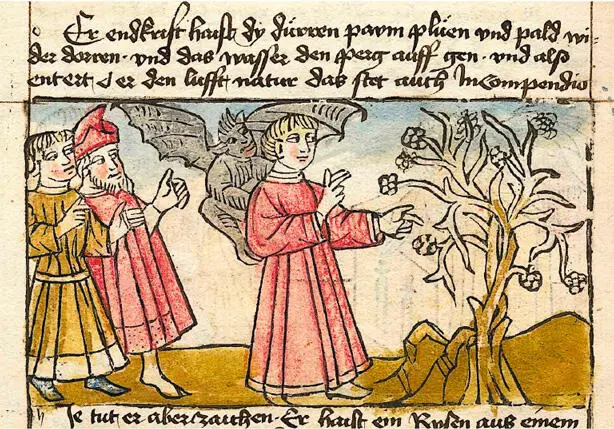 Er endkrist haist dy dürren pawm plüen vnd pald wi-
der dorren · vnd das wasser den perg auff gen · vnd also
entert er den lufft natur das stet auch In Compendio
Je tut er aber zaichen · Er haist ein Rysen aus einem